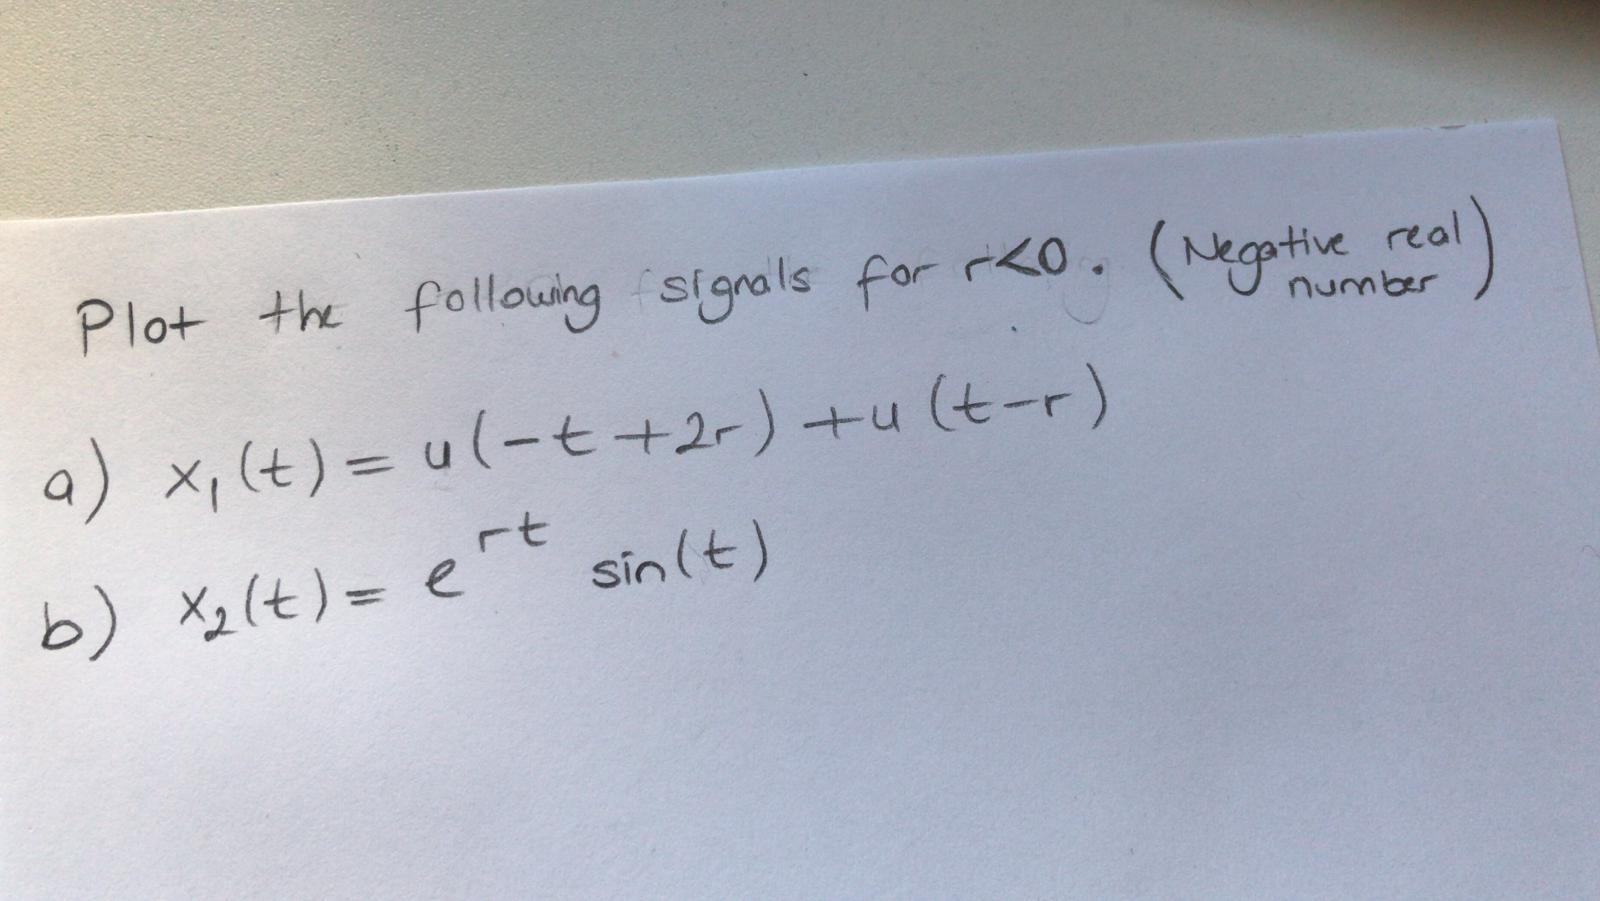 Plot the following signals for r<0. (Negative real number)
a) x₁(t) = u(-t+2r) + u(t-r)
b) x₂(t) = e^{rt} sin(t)